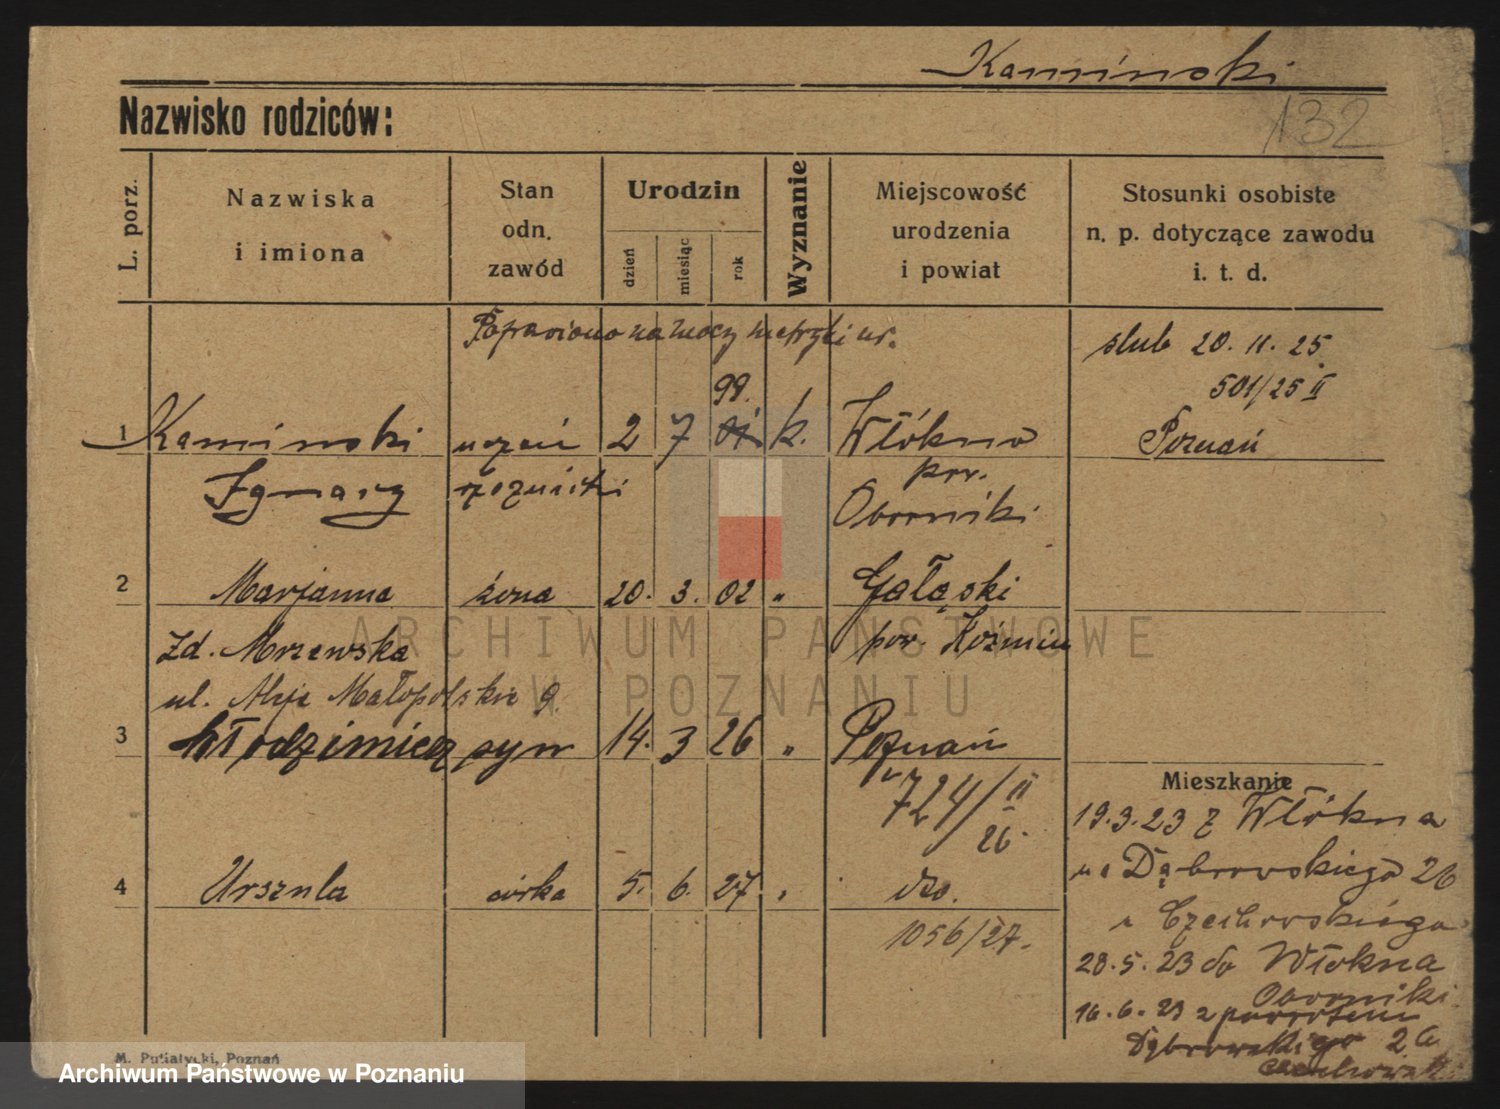 Kaminski
Nazwisko rodziców:
132
L. porz.
Nazwiska
i imiona
Stan
odn.
zawód
Urodzin
dzień
miesiąc
rok
Wyznanie
Miejscowość
urodzenia
i powiat
Stosunki osobiste
n. p. dotyczące zawodu
i. t. d.
Poprawiono na mocy metryki ur.
ślub 20. 11. 25.
501/25 II
Poznań
99.
1 Kaminski uczeń 2 7 01 k. Włókno
Ignacy rzeźnicki pow.
Oborniki
2 Marjanna żona 20. 3. 02 " Gałąski
zd. Mrzewska pow. Koźmin
ul. Aleje Małopolskie 9.
3 Włodzimierz syn 14. 3 26 " Poznań
724/II
26.
4 Urszula córka 5. 6. 27. " dto.
1056/27.
Mieszkanie
19.3.23 z Włókna
na Dąbrowskiego 26
u Czechowskiego
28.5.23 do Włókna
Oborniki
16.6.23 z powrotem
Dąbrowskiego 26
M. Putiatycki, Poznań
ARCHIWUM PAŃSTWOWE
W POZNANIU
Archiwum Państwowe w Poznaniu